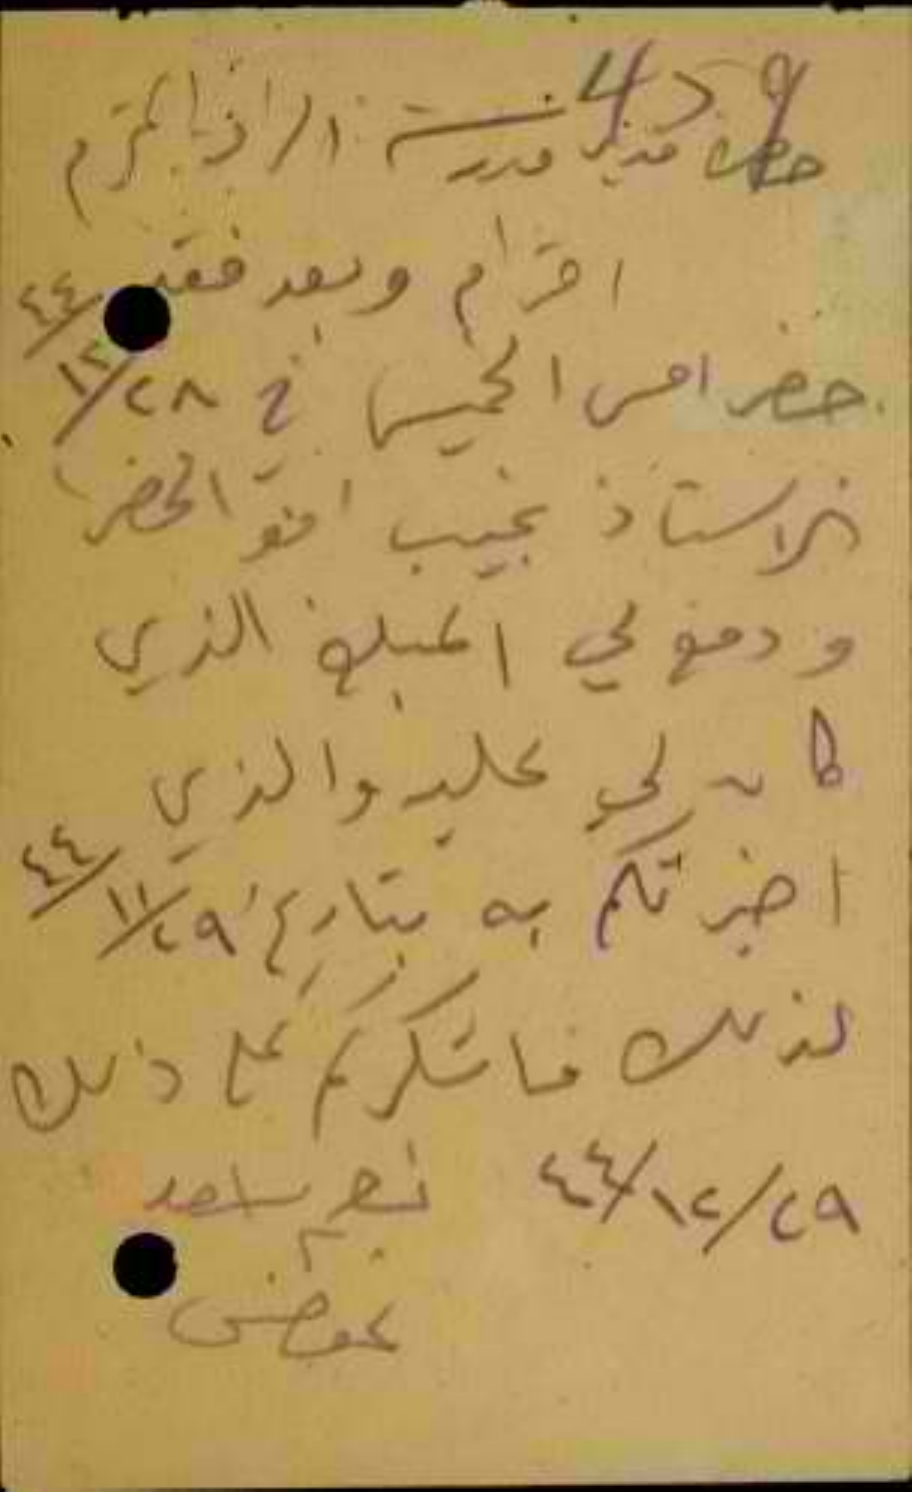 حضرة مدير مدرسة المحترم
احترام وبعد فقد
حضر امس الخميس في ٢٨/١٢/٤٤
الاستاذ نجيب الخضرا
ودفع لي المبلغ الذي
كان لي عليه والذي
اخبرتكم به بتاريخ ٢٩/١١/٤٤
لذلك فاشكركم على ذلك
٢٩/١٢/٤٤
عوض